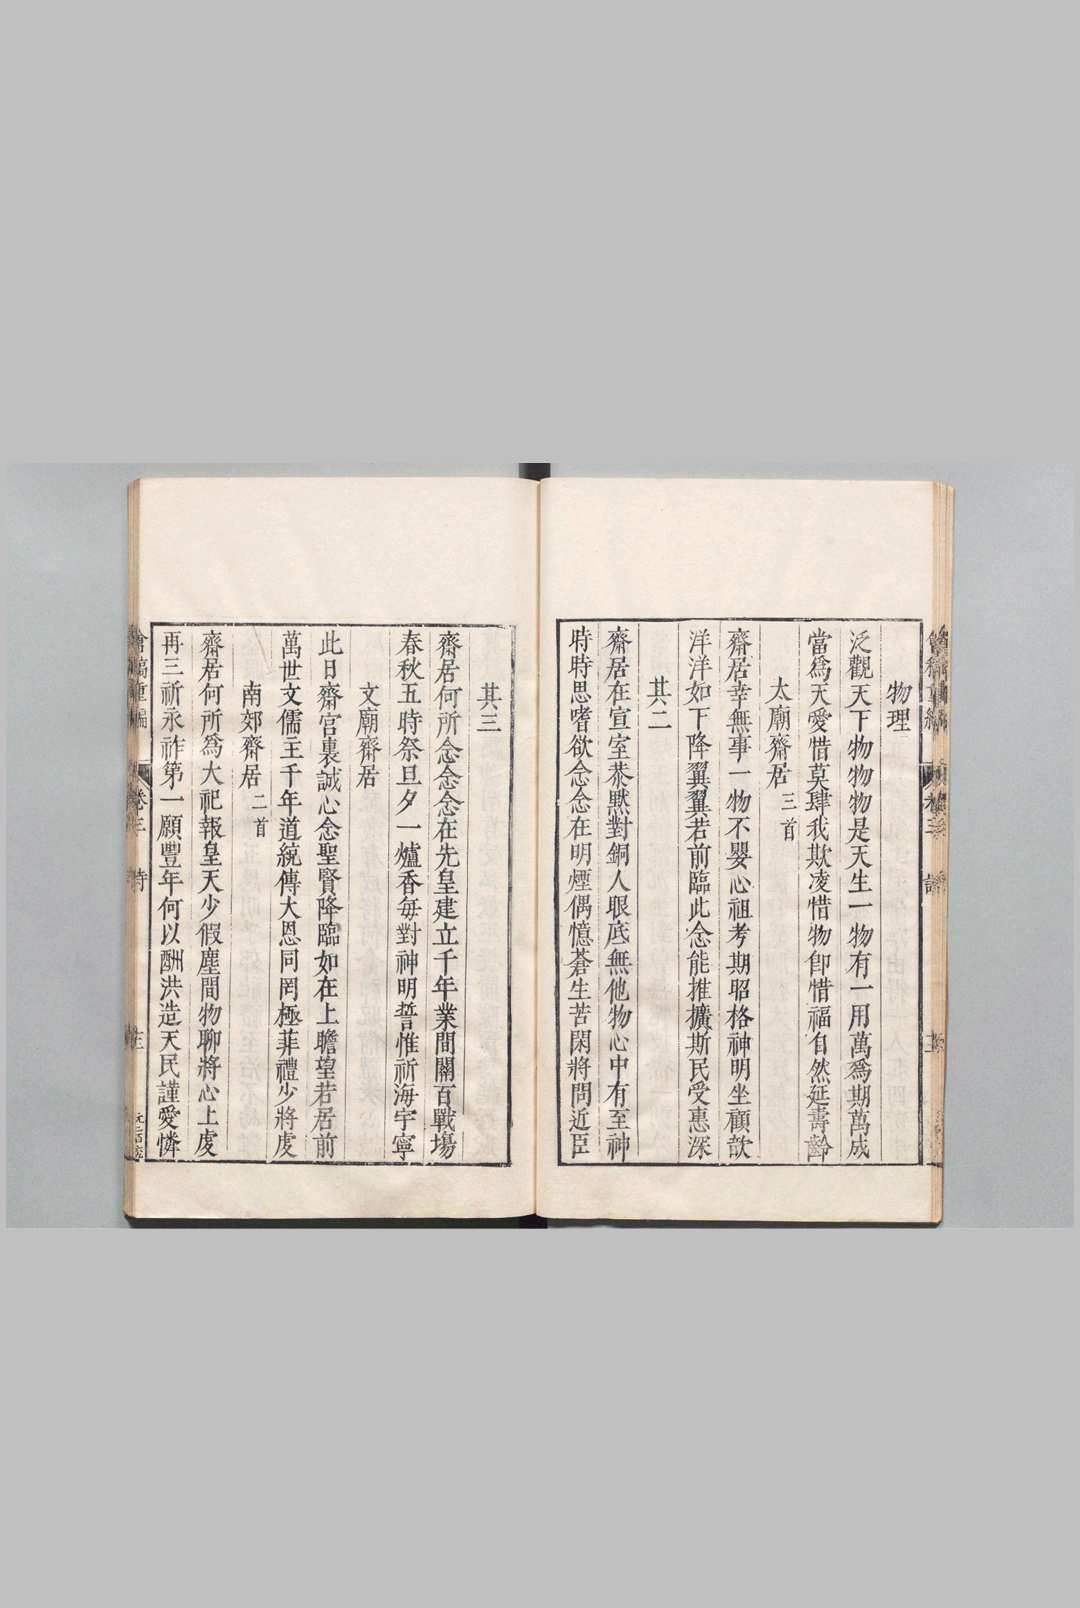 物理
泛觀天下物物物是天生一物有一用萬爲期萬成
當爲天愛惜莫肆我欺凌惜物卽惜福自然延壽齡
太廟齋居 三首
齋居幸無事一物不嬰心祖考期昭格神明坐顧歆
洋洋如下降翼翼若前臨此念能推擴斯民受惠深
其二
齋居在宣室恭黙對銅人眼底無他物心中有至神
時時思嗜欲念念在明煙偶憶蒼生苦閑將問近臣
其三
齋居何所念念念在先皇建立千年業間關百戰場
春秋五時祭旦夕一爐香每對神明誓惟祈海宇寧
文廟齋居
此日齋宮裏誠心念聖賢降臨如在上瞻望若居前
萬世文儒主千年道統傳大恩同罔極菲禮少將虔
南郊齋居 二首
齋居何所爲大祀報皇天少假塵間物聊將心上虔
再三祈永祚第一願豐年何以酬洪造天民謹愛憐
會稿重編
卷三
詩